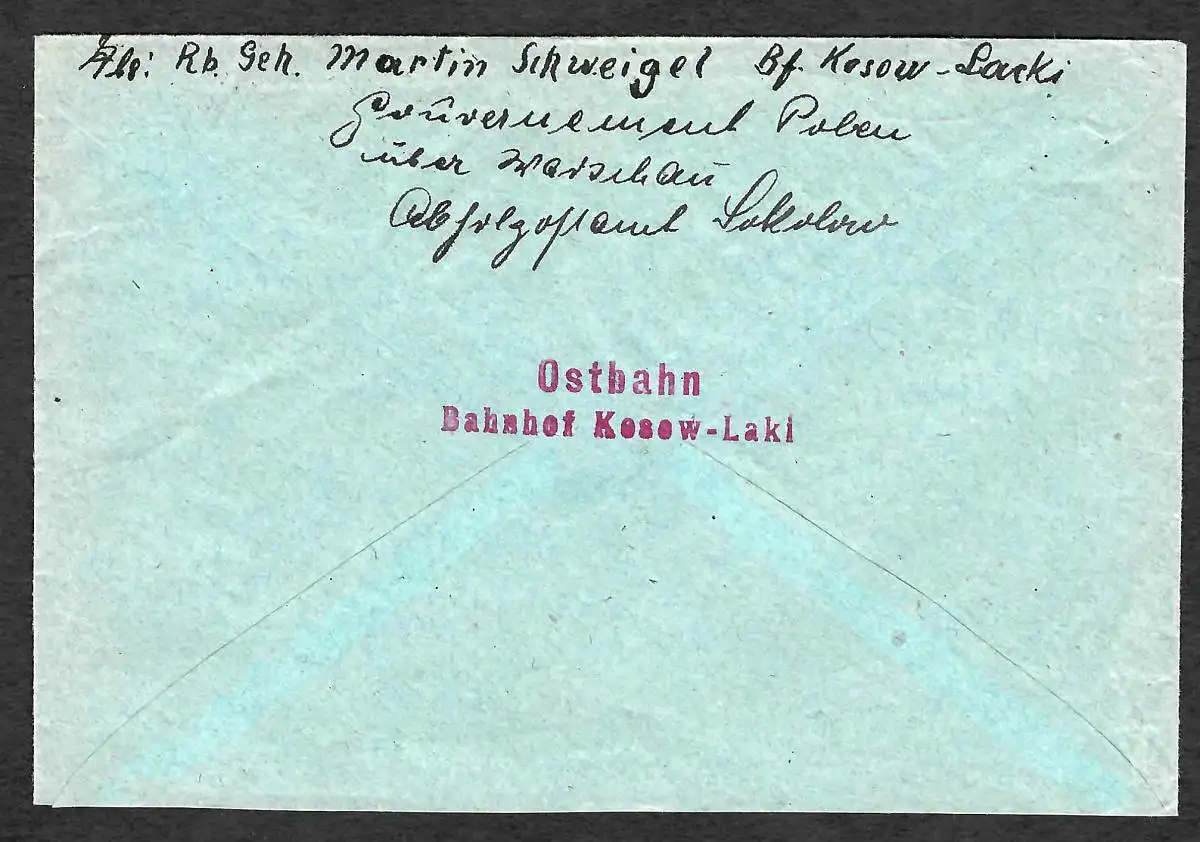 Abs: Rb. Geh. Martin Schweigel Bf. Kosow-Lacki
Gouvernement Polen
über Warschau
Abholpostamt Sokolow
Ostbahn
Bahnhof Kosow-Laki